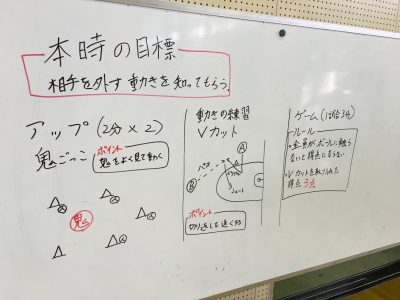 本時の目標
相手を外す動きを知ってもらう。
アップ(2分×2)
鬼ごっこ
ポイント
鬼をよく見て動く
鬼
動きの練習
Vカット
A
パス
B
シュート
ポイント
切り返しを速くする
ゲーム(1試合3分)
ルール
・全員がボールに触らないと得点にならない
・Vカットを取り入れた得点3点